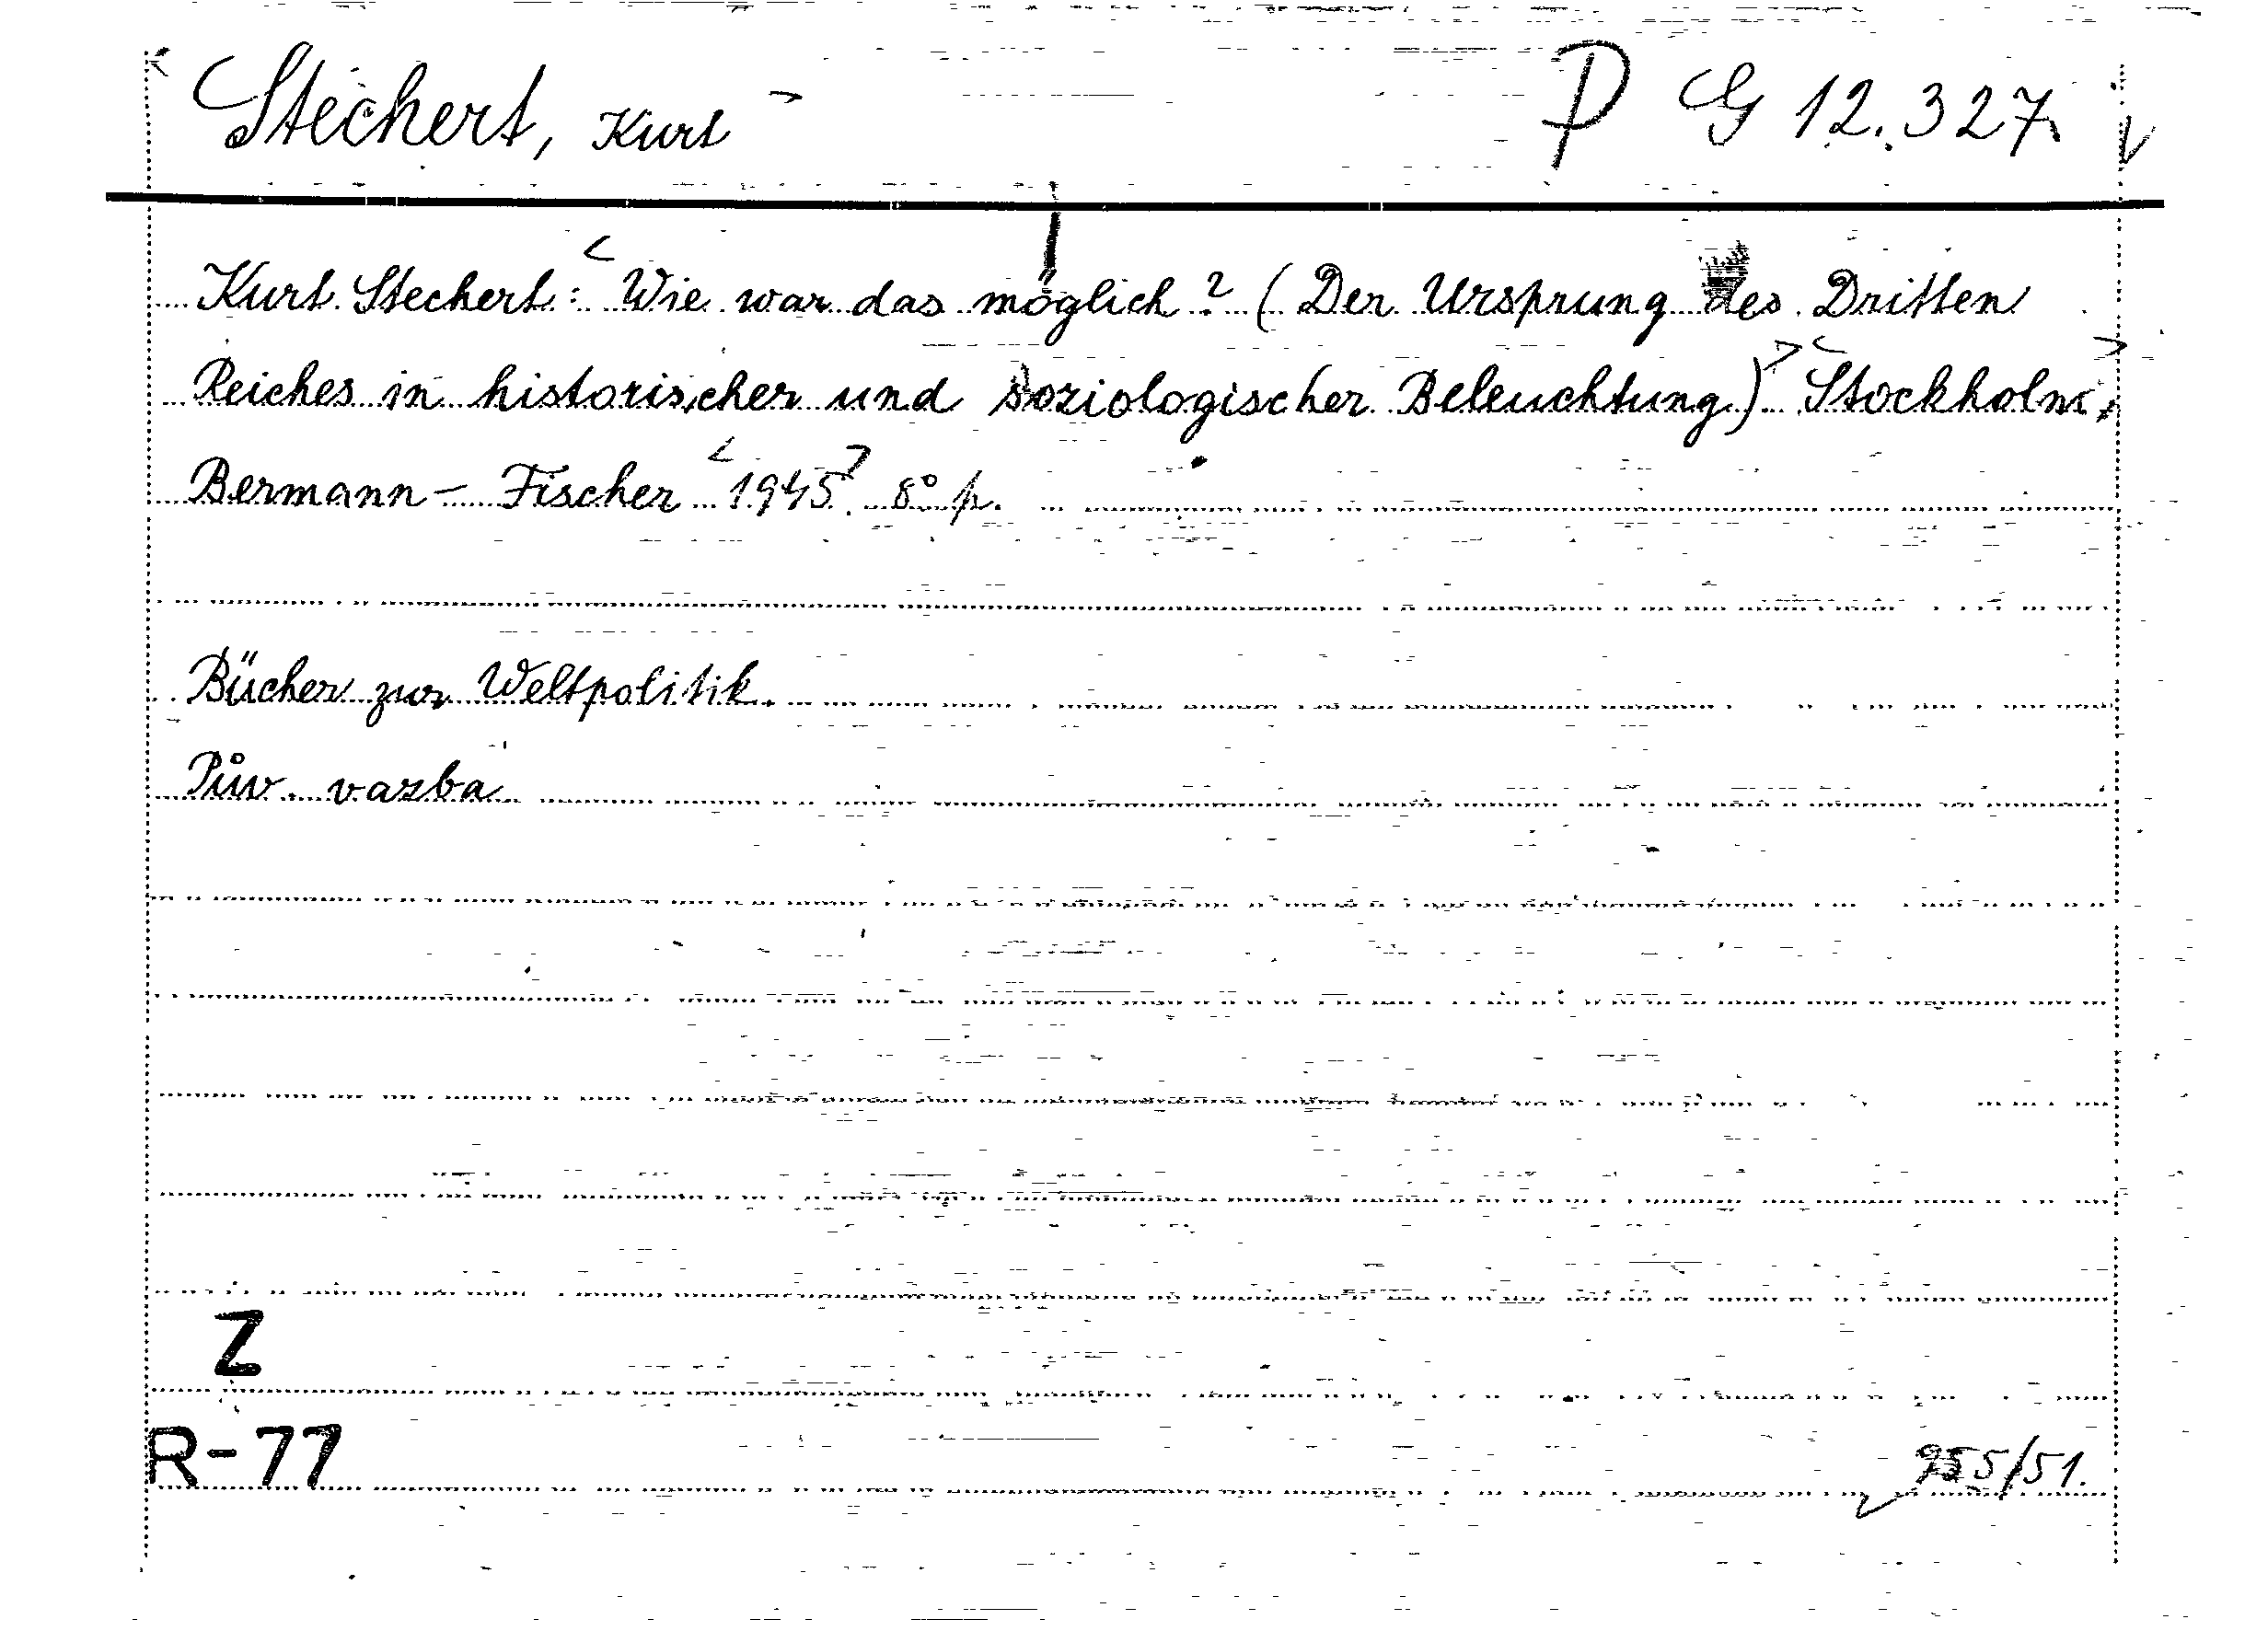 Stechert, Kurt P G 12.327
Kurt Stechert: Wie war das möglich? (Der Ursprung des Dritten
Reiches in historischer und soziologischer Beleuchtung) Stockholm,
Bermann - Fischer 1945. 8° p.
Bücher zur Weltpolitik.
Pův. vazba
Z
R-77
/51.